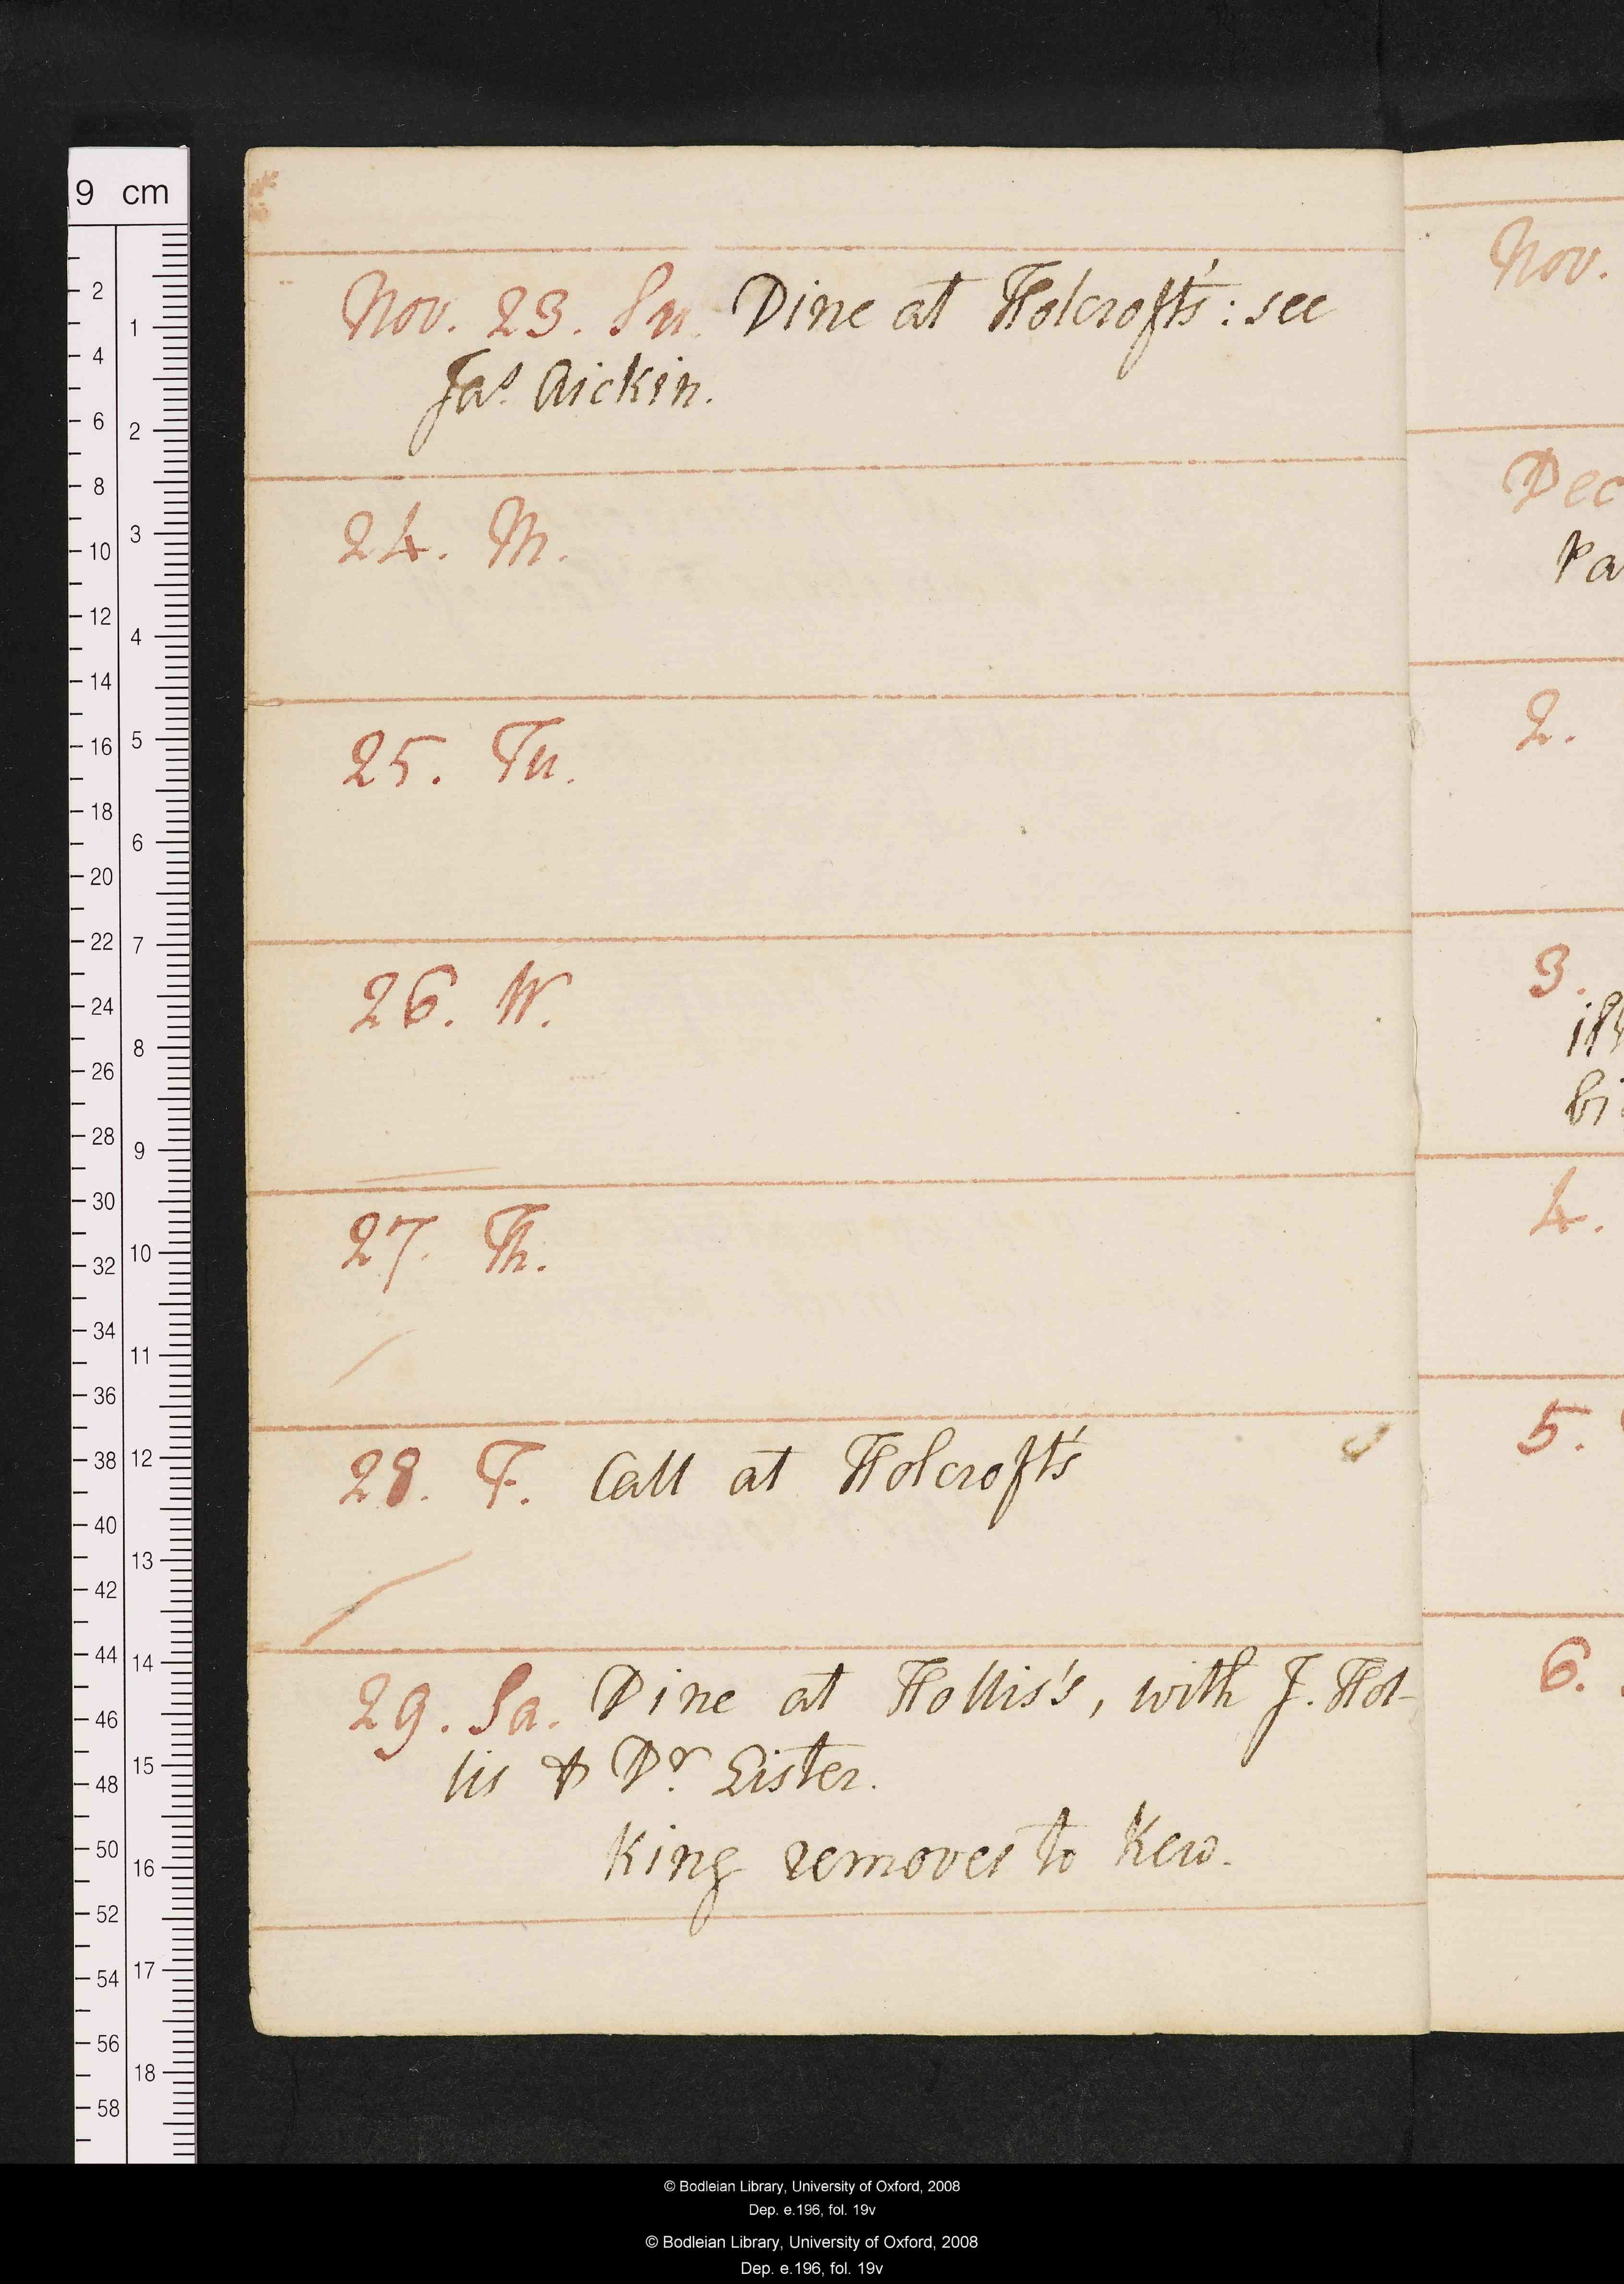 Nov. 23. Su. Dine at Holcroft's: see
Jas. Aickin.
24. M.
25. Tu.
26. W.
27. Th.
28. F. Call at Holcroft's
29. Sa. Dine at Hollis's, with J. Hol-
lis & Dr. Lister.
King removes to Kew.
Nov.
Dec
Pa
2.
3.
bi
4.
5.
6.
9 cm
2
4
6
8
10
12
14
16
18
20
22
24
26
28
30
32
34
36
38
40
42
44
46
48
50
52
54
56
58
1
2
3
4
5
6
7
8
9
10
11
12
13
14
15
16
17
18
© Bodleian Library, University of Oxford, 2008
Dep. e.196, fol. 19v
© Bodleian Library, University of Oxford, 2008
Dep. e.196, fol. 19v